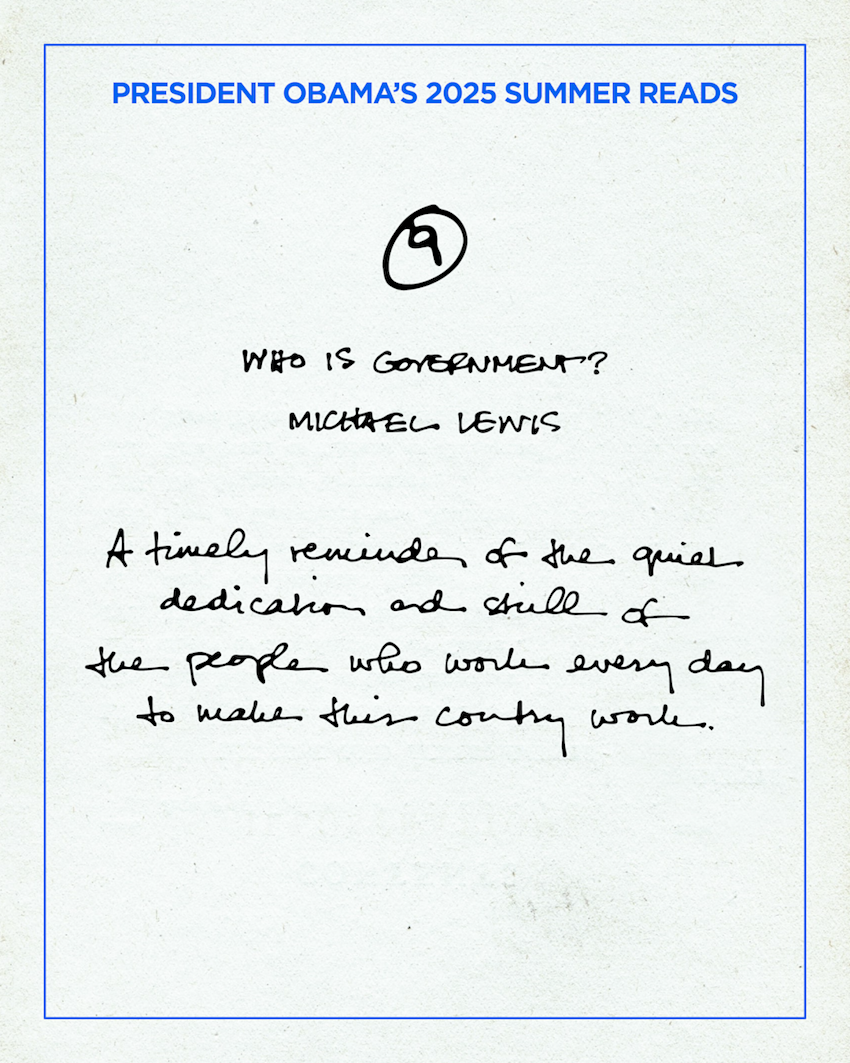 PRESIDENT OBAMA'S 2025 SUMMER READS
9
WHO IS GOVERNMENT?
MICHAEL LEWIS
A timely reminder of the quiet
dedication and skill of
the people who work every day
to make this country work.